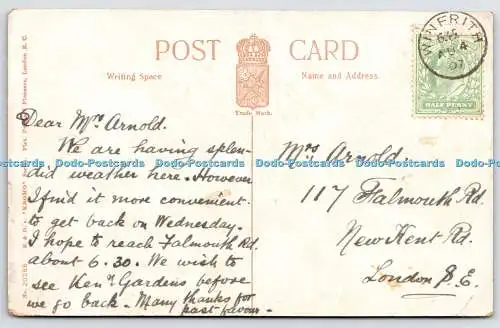 POST CARD
Writing Space
Name and Address
Trade Mark.
WINFRITH
4
07
HALF PENNY
Dear Mrs Arnold.
We are having splen-
did weather here. However
I find it more convenient
to get back on Wednesday.
I hope to reach Falmouth Rd.
about 6.30. We wish to
see Ken. Gardens before
we go back. Many thanks for
past favour.
Mrs Arnold.
117 Falmouth Rd.
New Kent Rd.
London S.E.
Dodo-Postcards Dodo-Postcards Dodo-Postcards Dodo-Postcards Dodo-Postcards